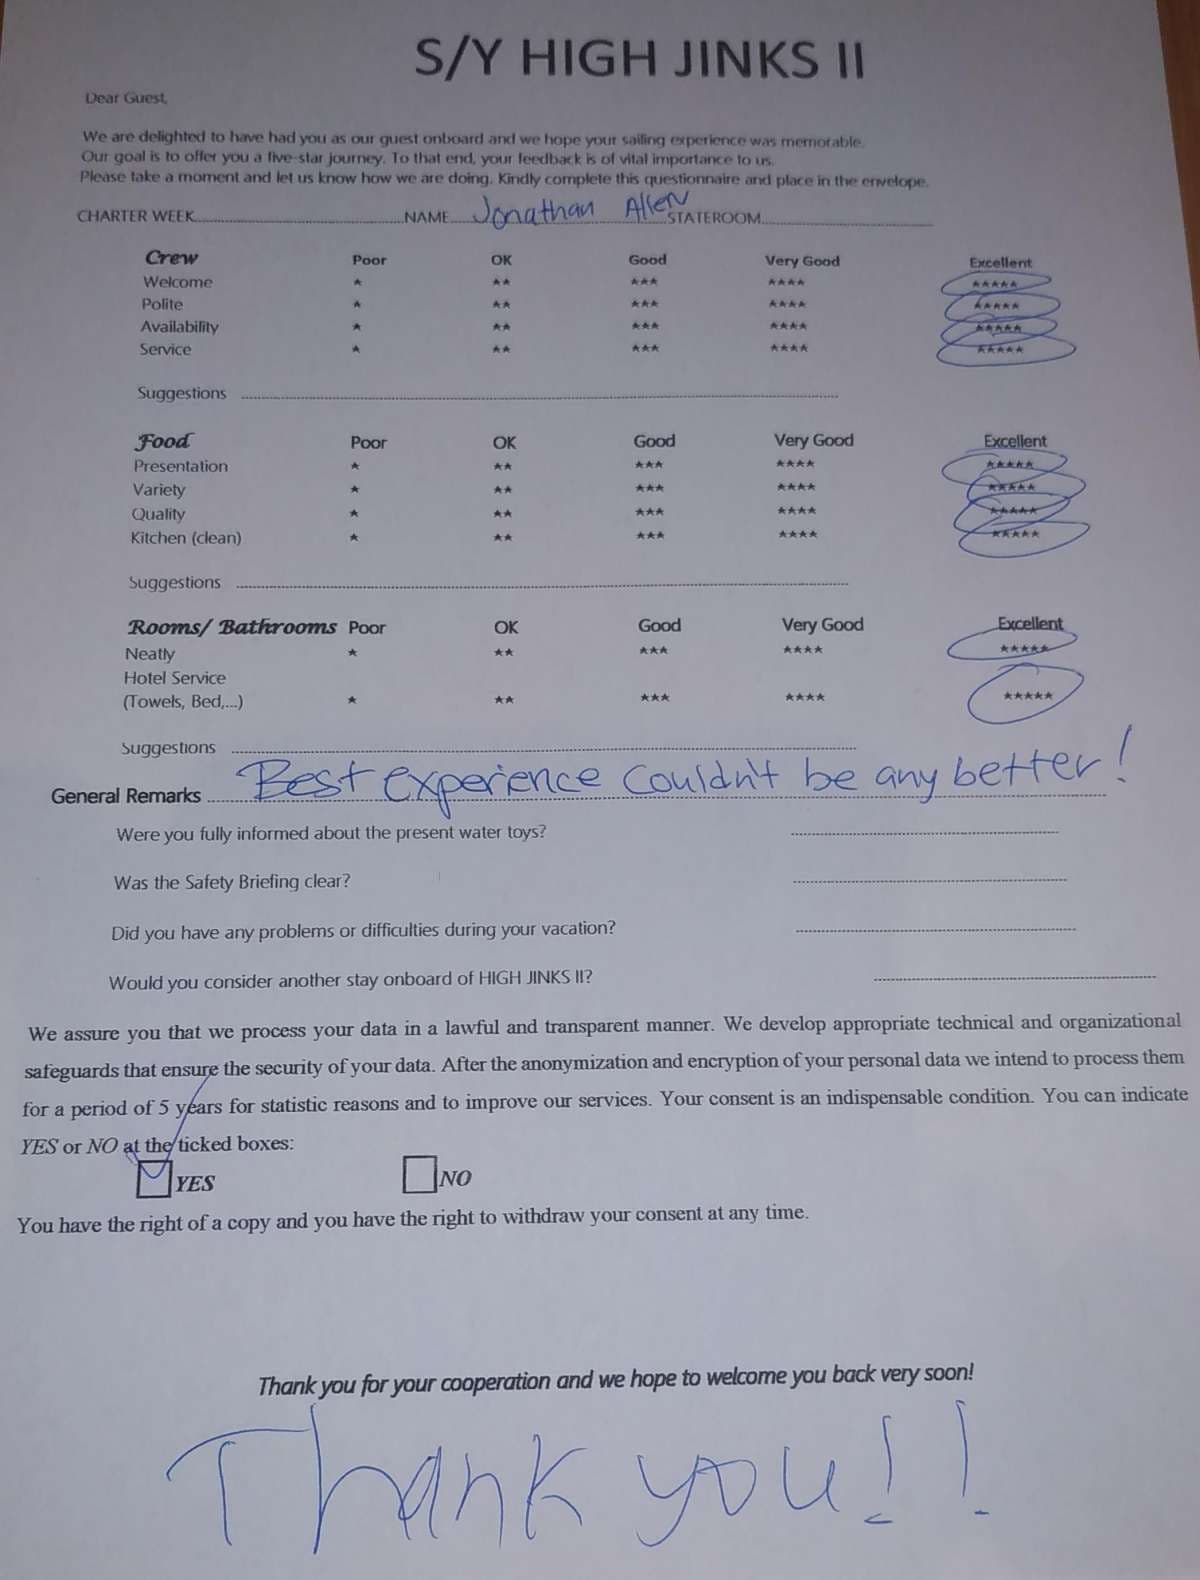 S/Y HIGH JINKS II
Dear Guest,
We are delighted to have had you as our guest onboard and we hope your sailing experience was memorable.
Our goal is to offer you a five-star journey. To that end, your feedback is of vital importance to us.
Please take a moment and let us know how we are doing. Kindly complete this questionnaire and place in the envelope.
CHARTER WEEK NAME Jonathan Allen STATEROOM
Crew Poor OK Good Very Good Excellent
Welcome ★ ★★ ★★★ ★★★★ ★★★★★
Polite ★ ★★ ★★★ ★★★★ ★★★★★
Availability ★ ★★ ★★★ ★★★★ ★★★★★
Service ★ ★★ ★★★ ★★★★ ★★★★★
Suggestions
Food Poor OK Good Very Good Excellent
Presentation ★ ★★ ★★★ ★★★★ ★★★★★
Variety ★ ★★ ★★★ ★★★★ ★★★★★
Quality ★ ★★ ★★★ ★★★★ ★★★★★
Kitchen (clean) ★ ★★ ★★★ ★★★★ ★★★★★
Suggestions
Rooms/ Bathrooms Poor OK Good Very Good Excellent
Neatly ★ ★★ ★★★ ★★★★ ★★★★★
Hotel Service
(Towels, Bed,...) ★ ★★ ★★★ ★★★★ ★★★★★
Suggestions
General Remarks Best experience couldn't be any better!
Were you fully informed about the present water toys?
Was the Safety Briefing clear?
Did you have any problems or difficulties during your vacation?
Would you consider another stay onboard of HIGH JINKS II?
We assure you that we process your data in a lawful and transparent manner. We develop appropriate technical and organizational
safeguards that ensure the security of your data. After the anonymization and encryption of your personal data we intend to process them
for a period of 5 years for statistic reasons and to improve our services. Your consent is an indispensable condition. You can indicate
YES or NO at the ticked boxes:
YES NO
You have the right of a copy and you have the right to withdraw your consent at any time.
Thank you for your cooperation and we hope to welcome you back very soon!
Thank you!!